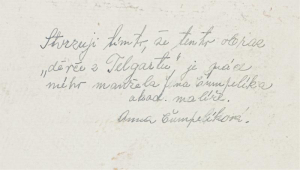 Stvrzuji tímto, že tento obraz
„děvče z Telgartu" je práce
mého manžela Jana Čumpelíka
akad. malíře.
Anna Čumpelíková.